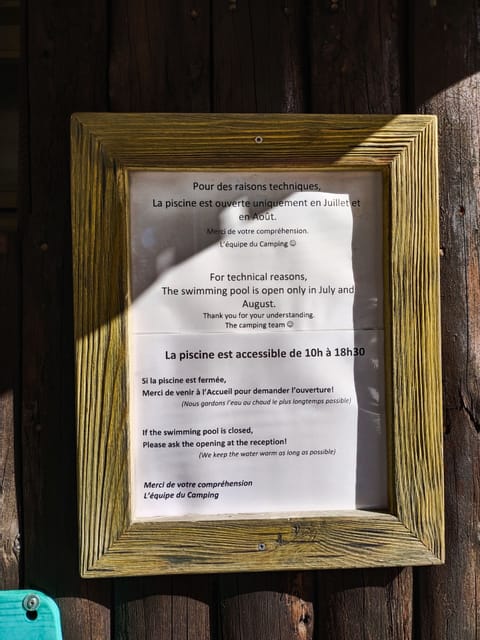 Pour des raisons techniques,
La piscine est ouverte uniquement en Juillet et
en Août.
Merci de votre compréhension.
L'équipe du Camping ☺
For technical reasons,
The swimming pool is open only in July and
August.
Thank you for your understanding.
The camping team ☺
La piscine est accessible de 10h à 18h30
Si la piscine est fermée,
Merci de venir à l'Accueil pour demander l'ouverture!
(Nous gardons l'eau au chaud le plus longtemps possible)
If the swimming pool is closed,
Please ask the opening at the reception!
(We keep the water warm as long as possible)
Merci de votre compréhension
L'équipe du Camping